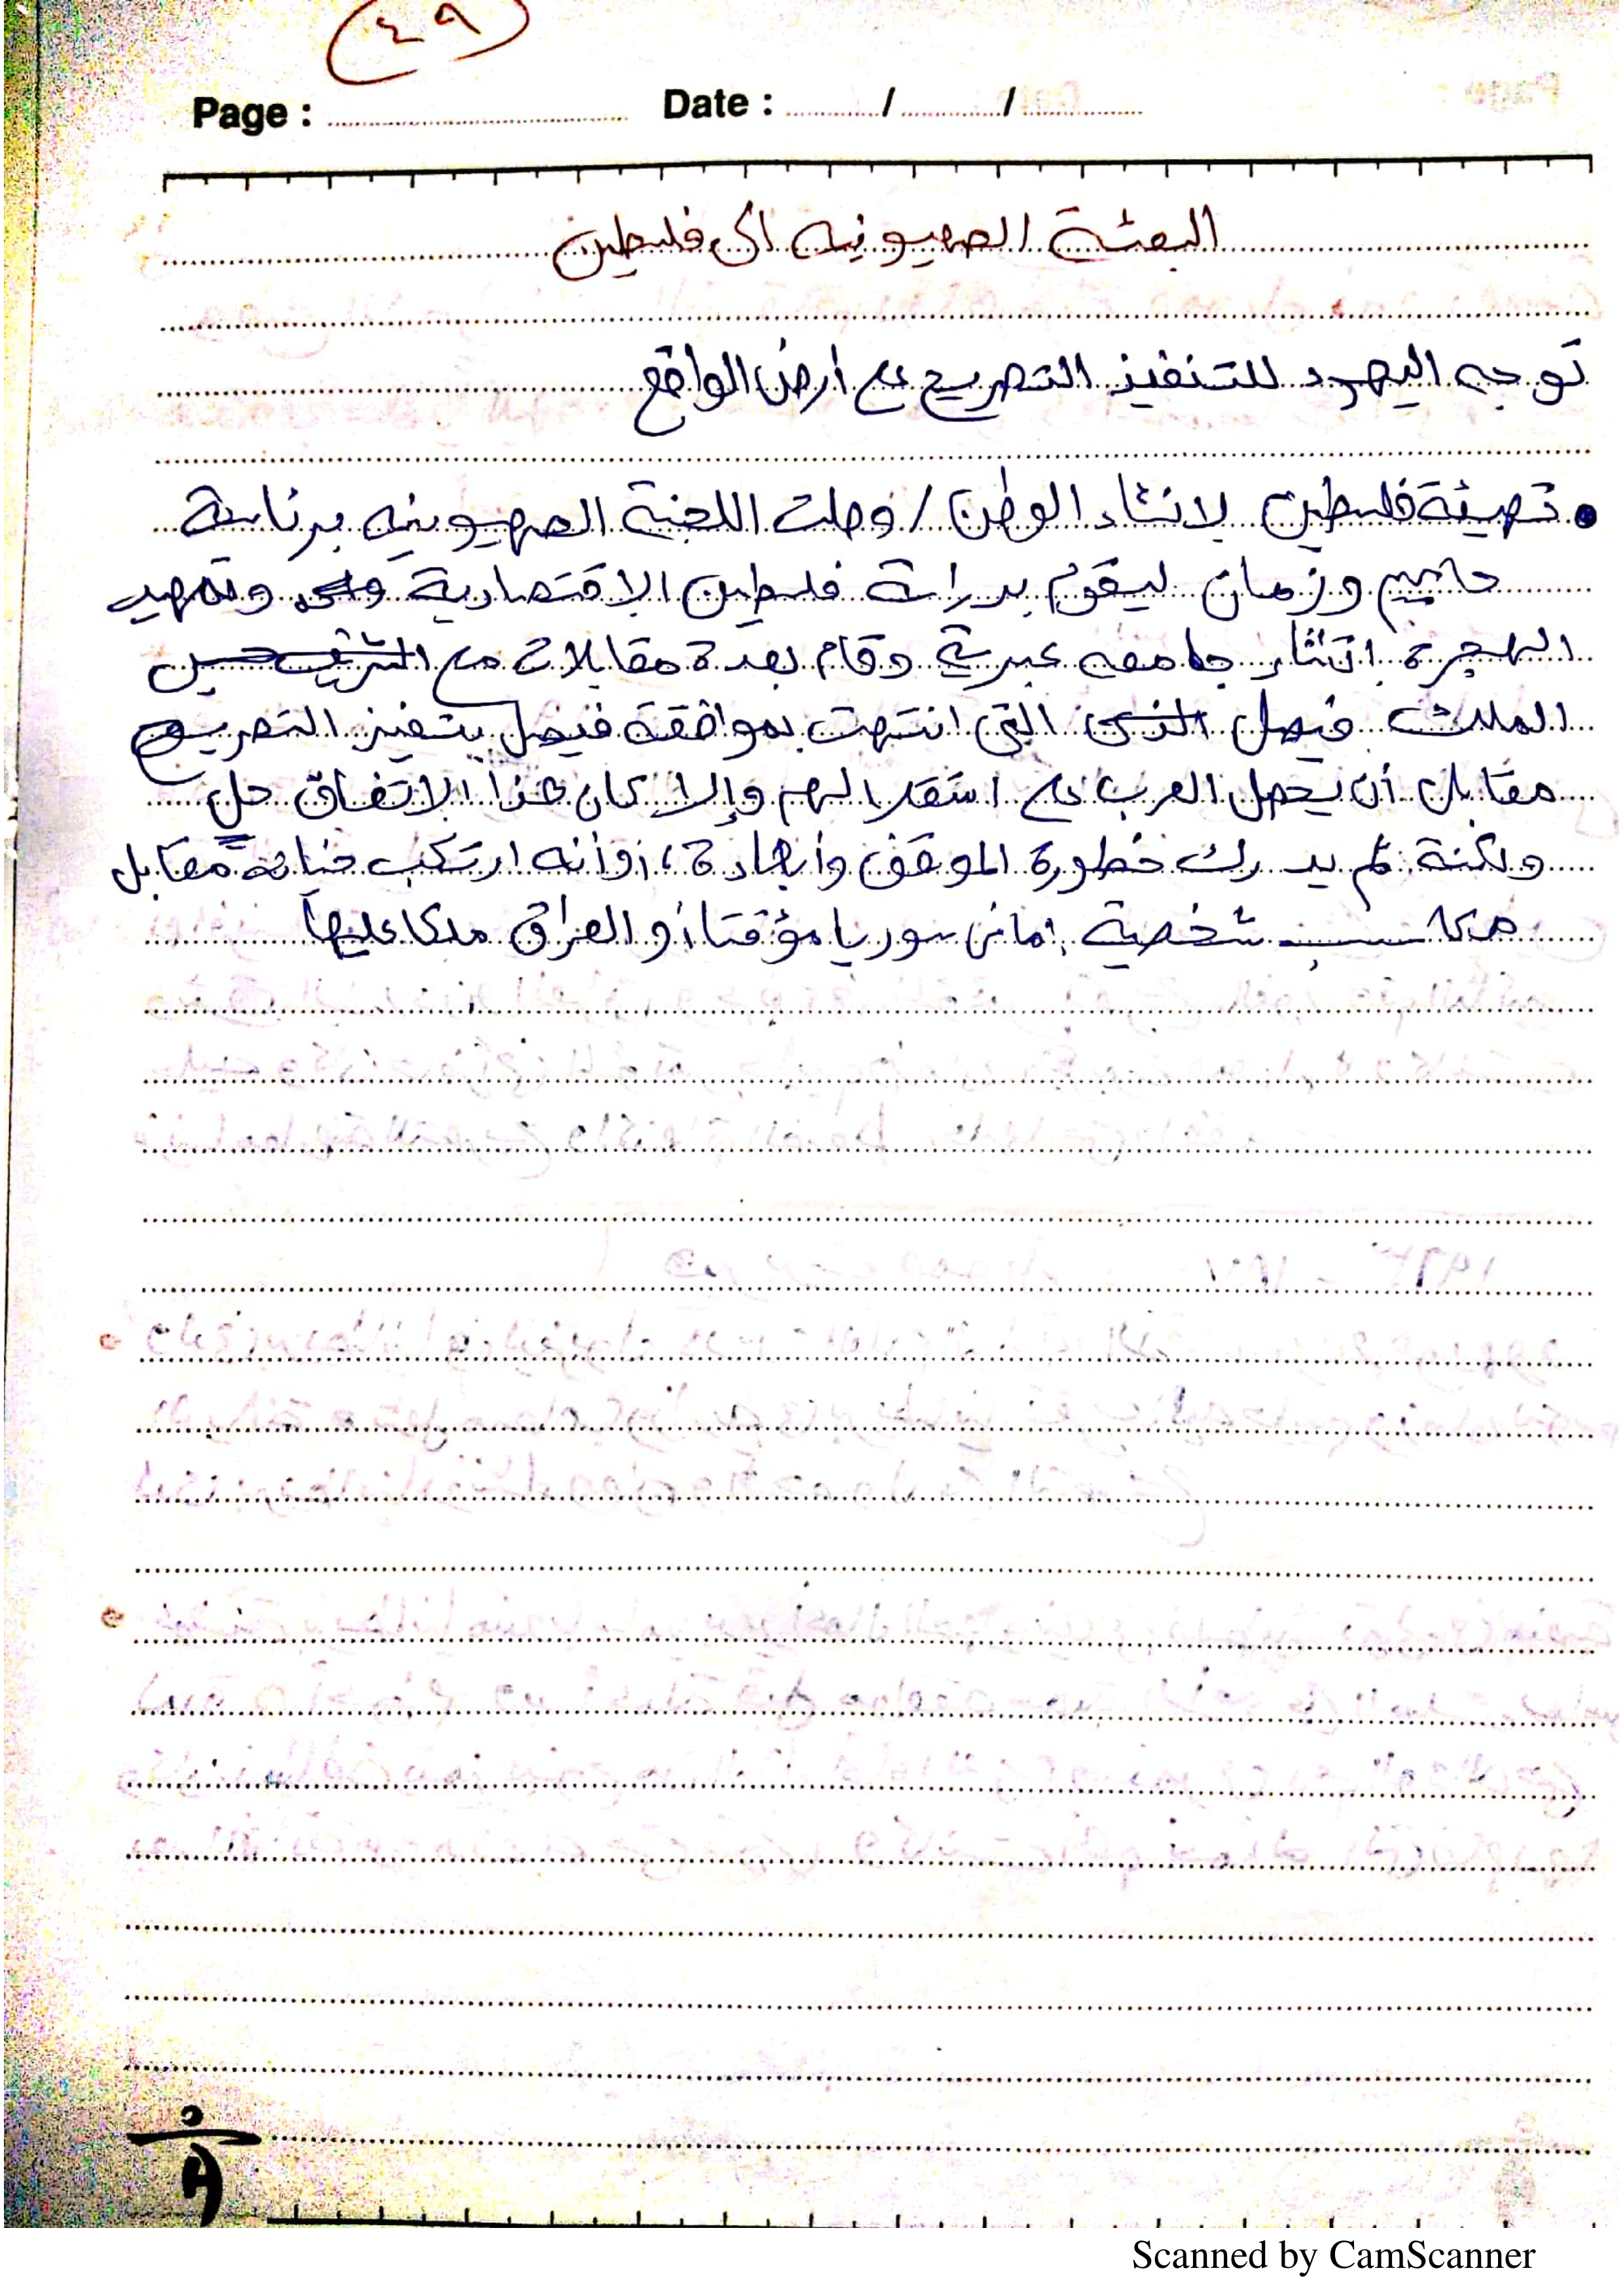 ٤٩
Page : Date : / /
البعثة الصهيونيه الى فلسطين
توجه اليهود للتنفيذ التصريح على أرض الواقع
• تهيئة فلسطين لانشاء الوطن / وصلت اللجنة الصهيونيه برئاسة
حاييم وزمان ليقوم بدراسة فلسطين الاقتصادية وتمهيد
الهجرة انشاء جامعه عبرية وقام بعدة مقابلات مع الشريف حسين
الملك فيصل الذى التي انتهت بموافقة فيصل بتنفيذ التصريح
مقابل أن يحصل العرب على استقلالهم وإلا كان هذا الاتفاق حل
ولكنة لم يدرك خطورة الموقف وأبعادة، أو أنه ارتكب خيانة مقابل
مكاسب شخصية إما في سوريا مؤقتا أو العراق ملكا عليها
Scanned by CamScanner